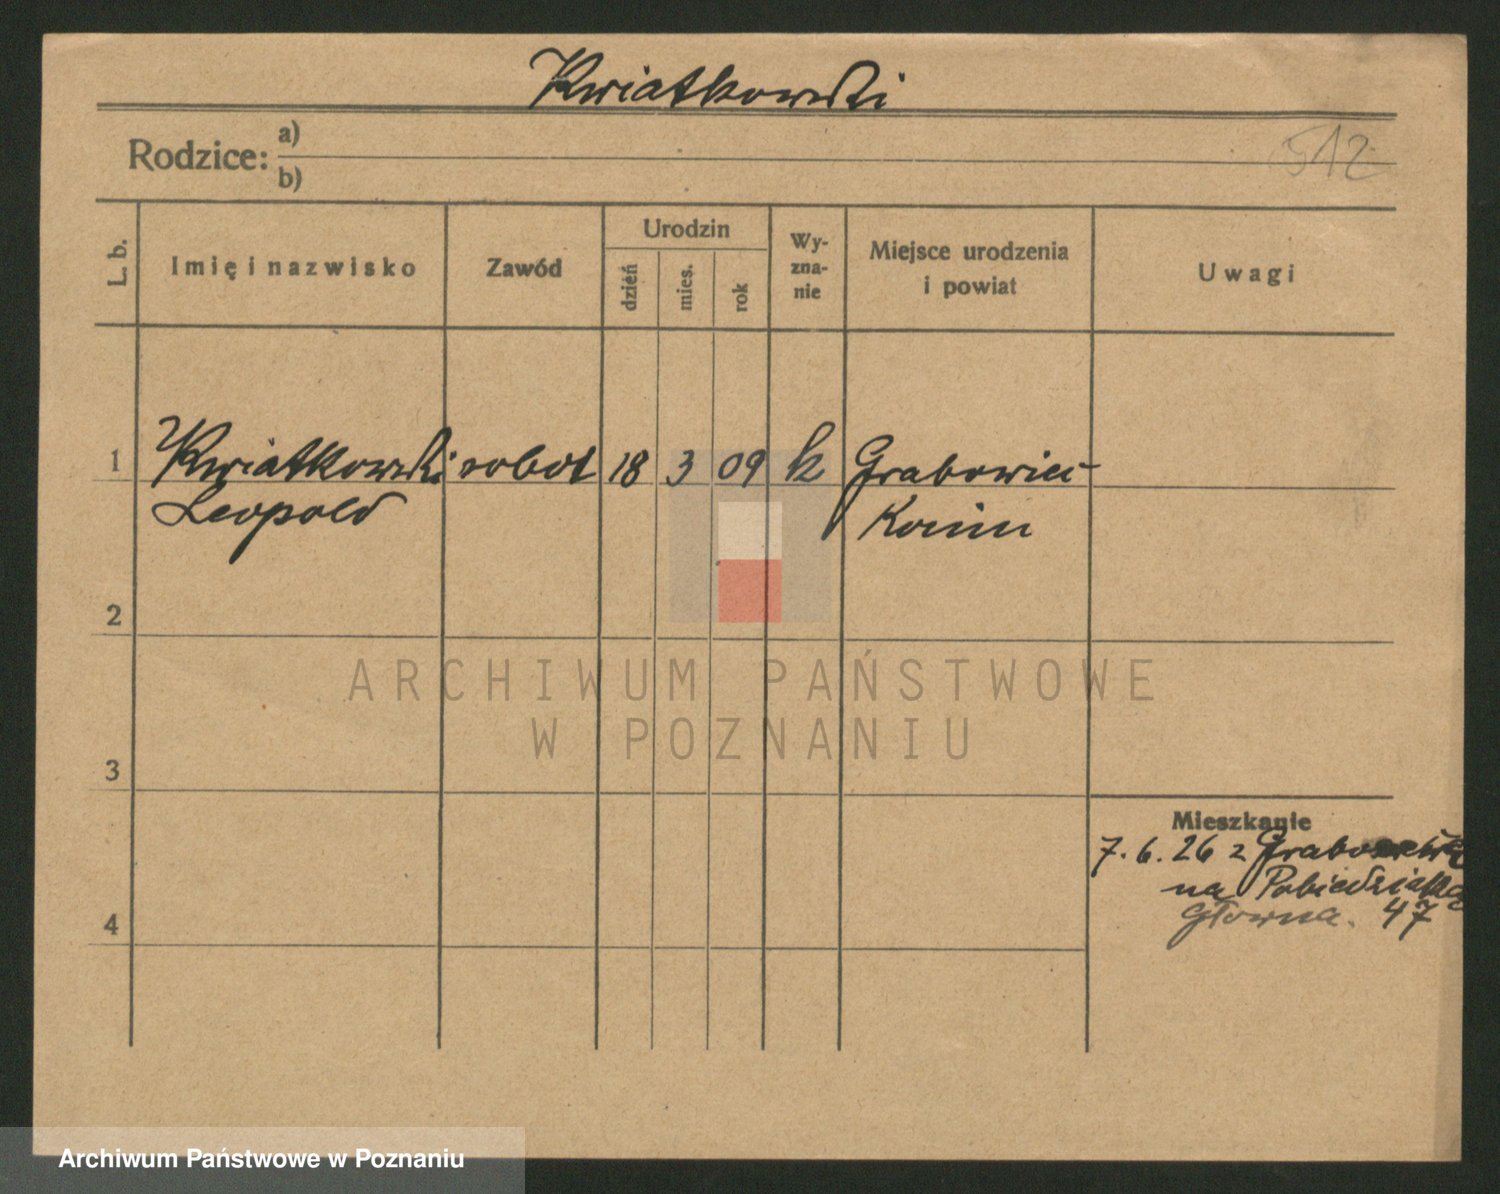 Kwiatkowski
Rodzice: a)
b)
512
L. b.
Imię i nazwisko
Zawód
Urodzin
dzień
mies.
rok
Wy-
zna-
nie
Miejsce urodzenia
i powiat
Uwagi
1 Kwiatkowski robot 18 3 09 k Grabowiec
Leopold Konin
2
ARCHIWUM PAŃSTWOWE
W POZNANIU
3
Mieszkanie
7. 6. 26 z
na
Główna. 47
4
Archiwum Państwowe w Poznaniu